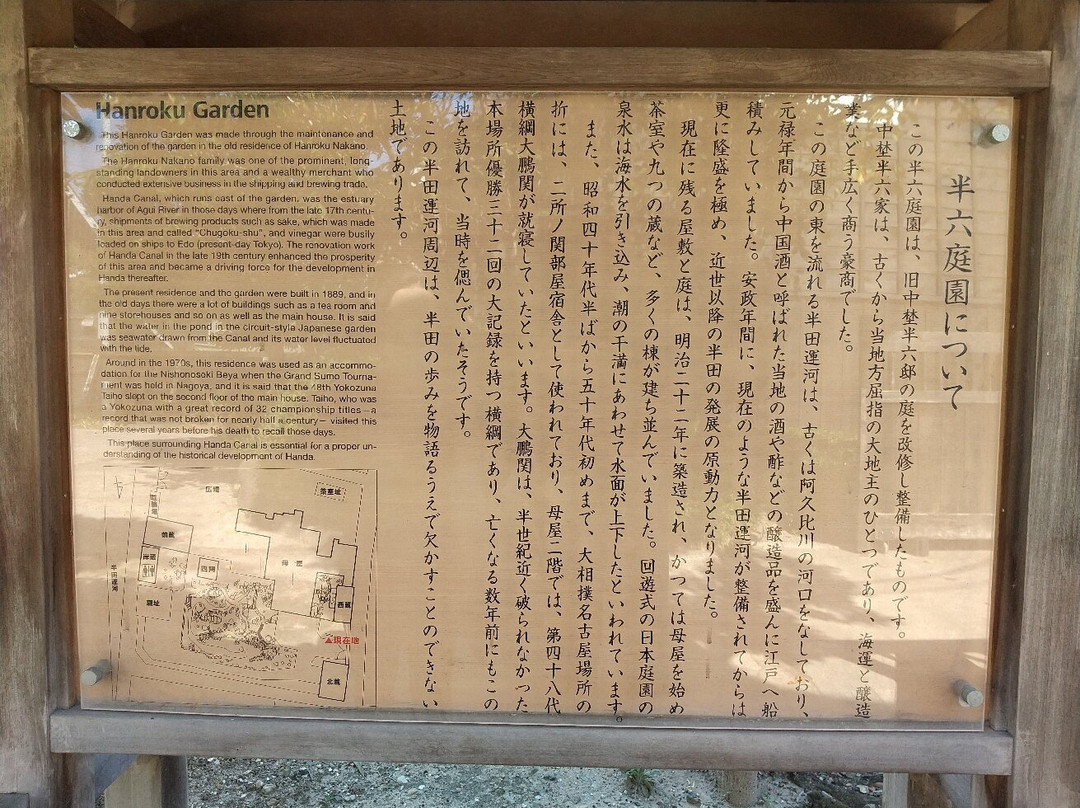 半六庭園について
この半六庭園は、旧中埜半六邸の庭を改修し整備したものです。
中埜半六家は、古くから当地方屈指の大地主のひとつであり、海運と醸造
業など手広く商う豪商でした。
この庭園の東を流れる半田運河は、古くは阿久比川の河口をなしており、
元禄年間から中国酒と呼ばれた当地の酒や酢などの醸造品を盛んに江戸へ船
積みしていました。安政年間に、現在のような半田運河が整備されてからは
更に隆盛を極め、近世以降の半田の発展の原動力となりました。
現在に残る屋敷と庭は、明治二十二年に築造され、かつては母屋を始め
茶室や九つの蔵など、多くの棟が建ち並んでいました。回遊式の日本庭園の
泉水は海水を引き込み、潮の干満にあわせて水面が上下したといわれています。
また、昭和四十年代半ばから五十年代初めまで、大相撲名古屋場所の
折には、二所ノ関部屋宿舎として使われており、母屋二階では、第四十八代
横綱大鵬関が就寝していたといいます。大鵬関は、半世紀近く破られなかった
本場所優勝三十二回の大記録を持つ横綱であり、亡くなる数年前にもこの
地を訪れて、当時を偲んでいたそうです。
この半田運河周辺は、半田の歩みを物語るうえで欠かすことのできない
土地であります。
Hanroku Garden
This Hanroku Garden was made through the maintenance and
renovation of the garden in the old residence of Hanroku Nakano.
The Hanroku Nakano family was one of the prominent, long-
standing landowners in this area and a wealthy merchant who
conducted extensive business in the shipping and brewing trade.
Handa Canal, which runs east of the garden, was the estuary
harbor of Agui River in those days where from the late 17th centu-
ry, shipments of brewing products such as sake, which was made
in this area and called "Chugoku-shu", and vinegar were busily
loaded on ships to Edo (present-day Tokyo). The renovation work
of Handa Canal in the late 19th century enhanced the prosperity
of this area and became a driving force for the development in
Handa thereafter.
The present residence and the garden were built in 1889, and in
the old days there were a lot of buildings such as a tea room and
nine storehouses and so on as well as the main house. It is said
that the water in the pond in the circuit-style Japanese garden
was seawater drawn from the Canal and its water level fluctuated
with the tide.
Around in the 1970s, this residence was used as an accommo-
dation for the Nishonoseki Beya when the Grand Sumo Tourna-
ment was held in Nagoya, and it is said that the 48th Yokozuna
Taiho slept on the second floor of the main house. Taiho, who was
a Yokozuna with a great record of 32 championship titles – a
record that was not broken for nearly half a century – visited this
place several years before his death to recall those days.
This place surrounding Handa Canal is essential for a proper un-
derstanding of the historical development of Handa.
広場
茶室址
母屋
半田運河
蔵址
西蔵
▲現在地
北蔵